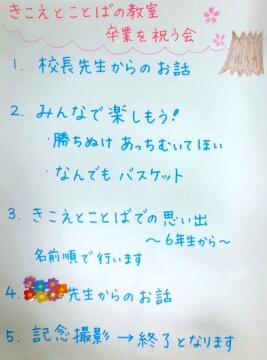 きこえとことばの教室
卒業を祝う会
1. 校長先生からのお話
2. みんなで楽しもう!
・勝ちぬけ あっちむいてほい
・なんでも バスケット
3. きこえとことばでの思い出
～6年生から～
名前順で行います
4. 先生からのお話
5. 記念撮影 → 終了となります